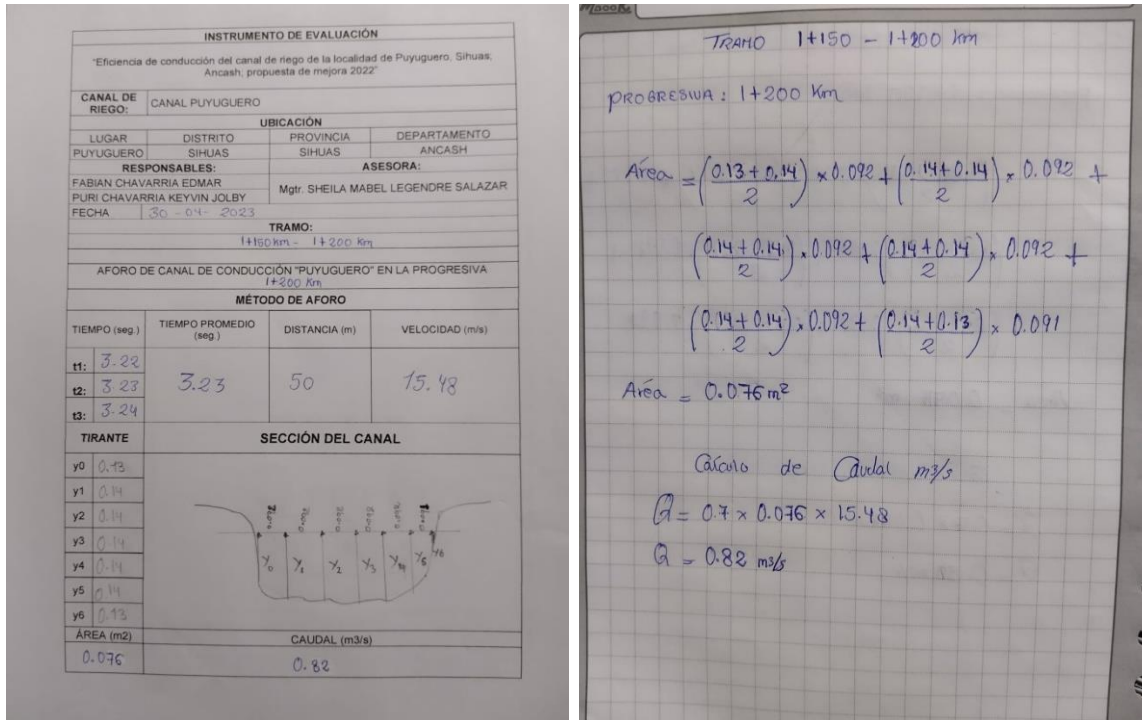 INSTRUMENTO DE EVALUACIÓN
"Eficiencia de conducción del canal de riego de la localidad de Puyuguero, Sihuas,
Ancash; propuesta de mejora 2022"
CANAL DE RIEGO: CANAL PUYUGUERO
UBICACIÓN
LUGAR DISTRITO PROVINCIA DEPARTAMENTO
PUYUGUERO SIHUAS SIHUAS ANCASH
RESPONSABLES: ASESORA:
FABIAN CHAVARRIA EDMAR
PURI CHAVARRIA KEYVIN JOLBY
Mgtr. SHEILA MABEL LEGENDRE SALAZAR
FECHA 30 - 04 - 2023
TRAMO:
1+150 km - 1+200 km
AFORO DE CANAL DE CONDUCCIÓN "PUYUGUERO" EN LA PROGRESIVA
1+200 Km
MÉTODO DE AFORO
TIEMPO (seg.) TIEMPO PROMEDIO (seg.) DISTANCIA (m) VELOCIDAD (m/s)
t1: 3.22
t2: 3.23 3.23 50 15.48
t3: 3.24
TIRANTE SECCIÓN DEL CANAL
y0 0.13
y1 0.14
y2 0.14
y3 0.14
y4 0.14
y5 0.14
y6 0.13
0.092 0.092 0.092
Y0 Y1 Y2 Y3 Y4 Y5 Y6
ÁREA (m2) CAUDAL (m3/s)
0.076 0.82
TRAMO 1+150 - 1+200 km
PROGRESIVA: 1+200 Km
Área = (0.13+0.14/2) x 0.092 + (0.14+0.14/2) x 0.092 +
(0.14+0.14/2) x 0.092 + (0.14+0.14/2) x 0.092 +
(0.14+0.14/2) x 0.092 + (0.14+0.13/2) x 0.091
Área = 0.076 m²
Cálculo de Caudal m3/s
Q = 0.7 x 0.076 x 15.48
Q = 0.82 m3/s